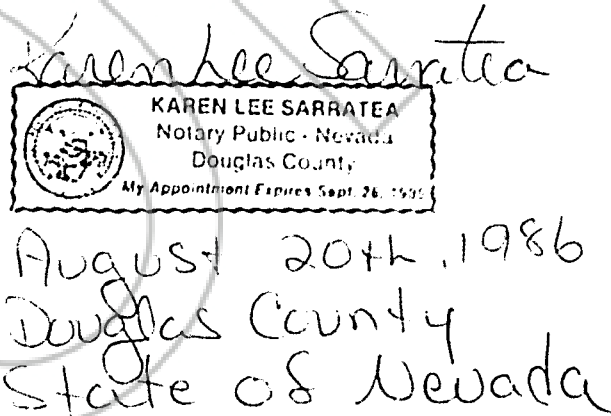 Karen Lee Sarratea
KAREN LEE SARRATEA
Notary Public - Nevada
Douglas County
My Appointment Expires Sept. 26,
August 20th, 1986
Douglas County
State of Nevada